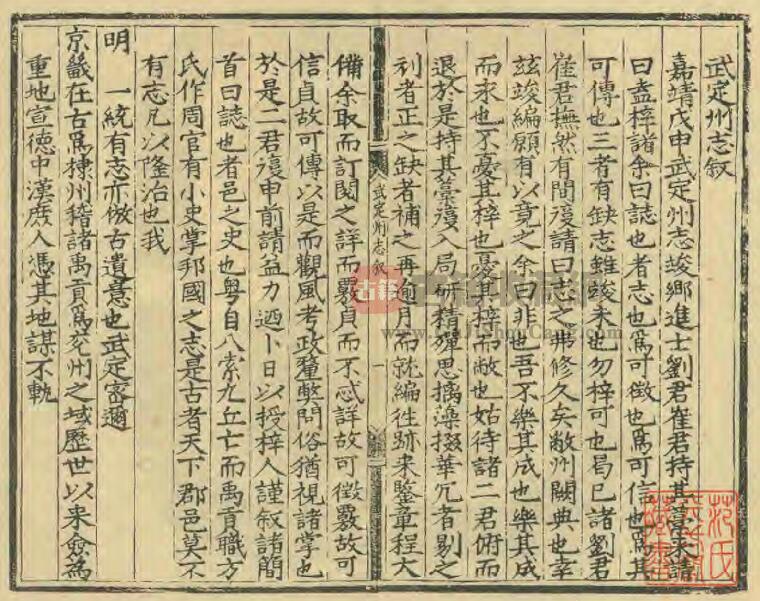 武定州志叙
嘉靖戊申武定州志竣鄉進士劉君崔君持其藁來請
曰盍梓諸余曰誌也者志也爲可徵也爲可信也爲其
可傳也三者有缺志雖竣未也勿梓可也曷已諸劉君
崔君撫然有間復請曰志之弗修久矣敝州闕典也幸
兹竣編願有以竟之余曰非也吾不樂其成也樂其成
而永也不憂其梓也憂其梓而敝也姑待諸二君俯而
退於是持其藁復入局研精殫思摛藻掇華冗者剔之
利者正之缺者補之再逾月而就編徃跡來鑒章程大
武定州志叙
一
備余取而訂閱之詳而覈貞而不惑詳故可徵覈故可
信貞故可傳以是而觀風考政釐獘問俗猶視諸掌也
於是二君復申前請益力廼卜日以授梓人謹叙諸簡
首曰誌也者邑之史也粤自八索九丘亡而禹貢職方
氏作周官有小史掌邦國之志是古者天下郡邑莫不
有志凡以隆治也我
明一統有志亦倣古遺意也武定密邇
京畿在古爲棣州稽諸禹貢爲兖州之域歷世以來僉爲
重地宣德中漢庶人憑其地謀不軌
古籍
范氏